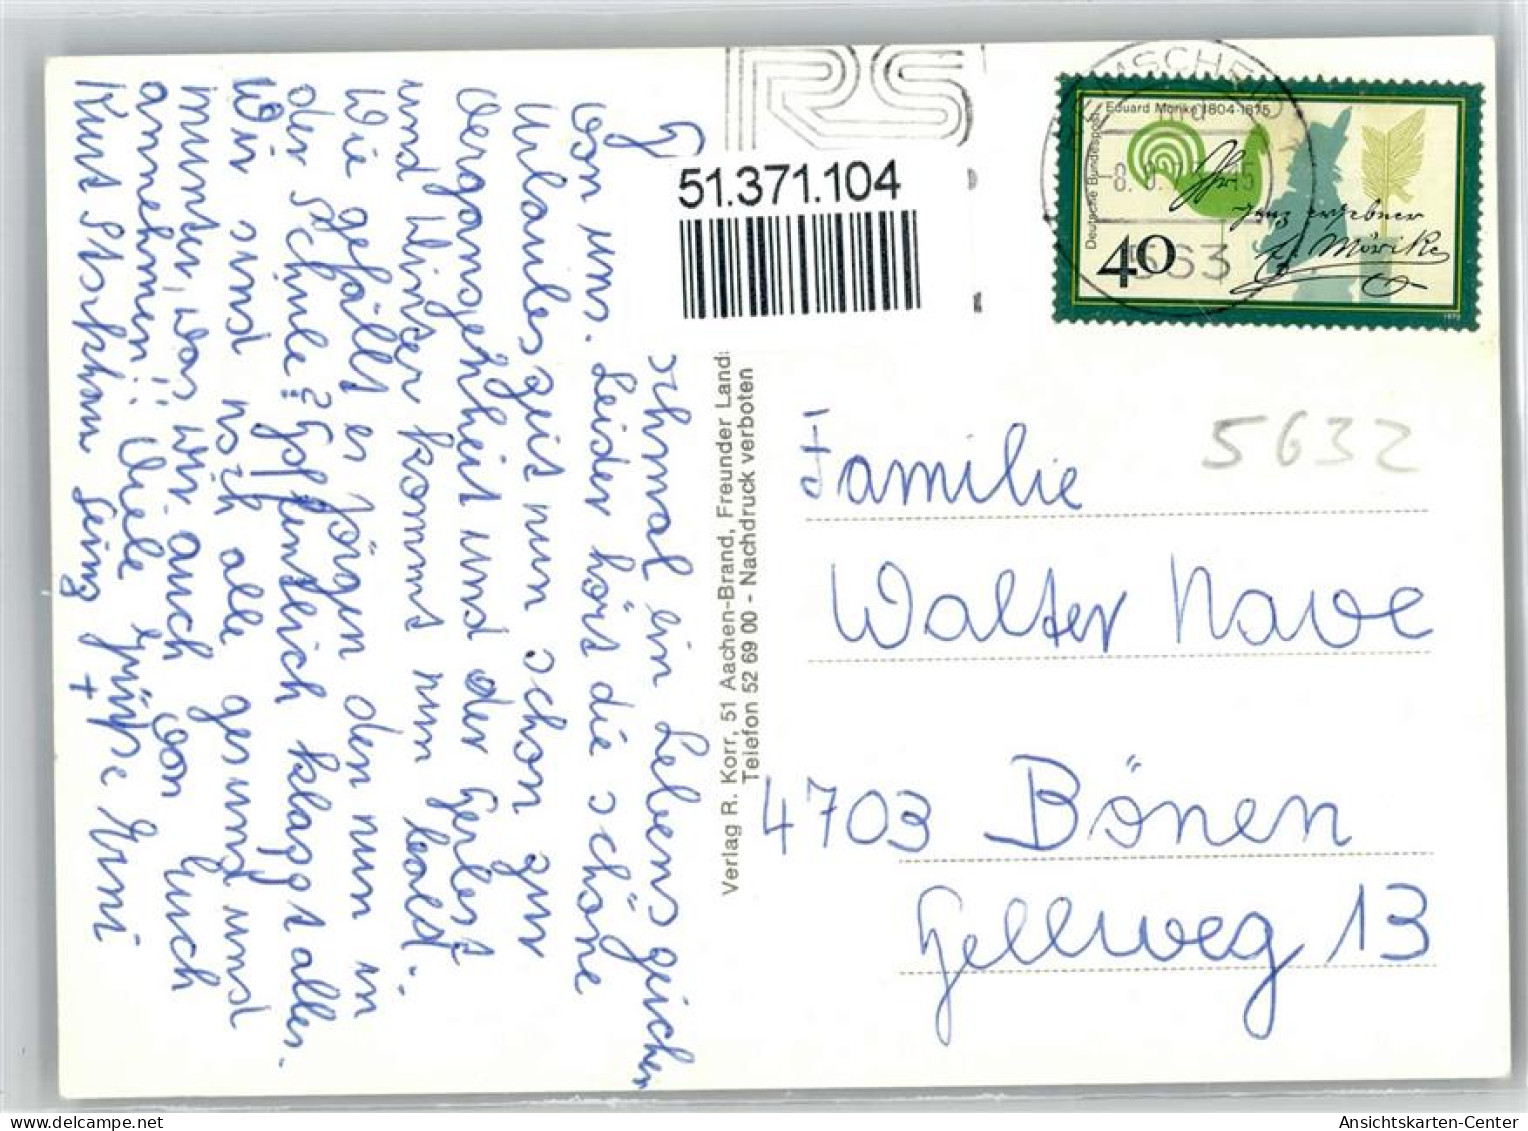 von uns. Leider hört die schöne
Urlaubszeit nun schon zur
Vergangenheit und der Herbst
und Winter kommt nun bald.
Wie gefällt es Jörgen den nun in
der Schule? Hoffentlich klappt alles.
Wir sind noch alle gesund und
munter, was wir auch von Euch
annehmen!! Viele Grüße Erni
Kurt
+
chmal ein Lebenszeichen
Verlag R. Korr, 51 Aachen-Brand, Freunder Land
Telefon 52 69 00 - Nachdruck verboten
RS
51.371.104
Eduard Mörike 1804-1875
Deutsche Bundespost
40
E. Mörike
1975
563
5632
Familie
Walter Nave
4703 Bönen
Hellweg 13
Ansichtskarten-Center